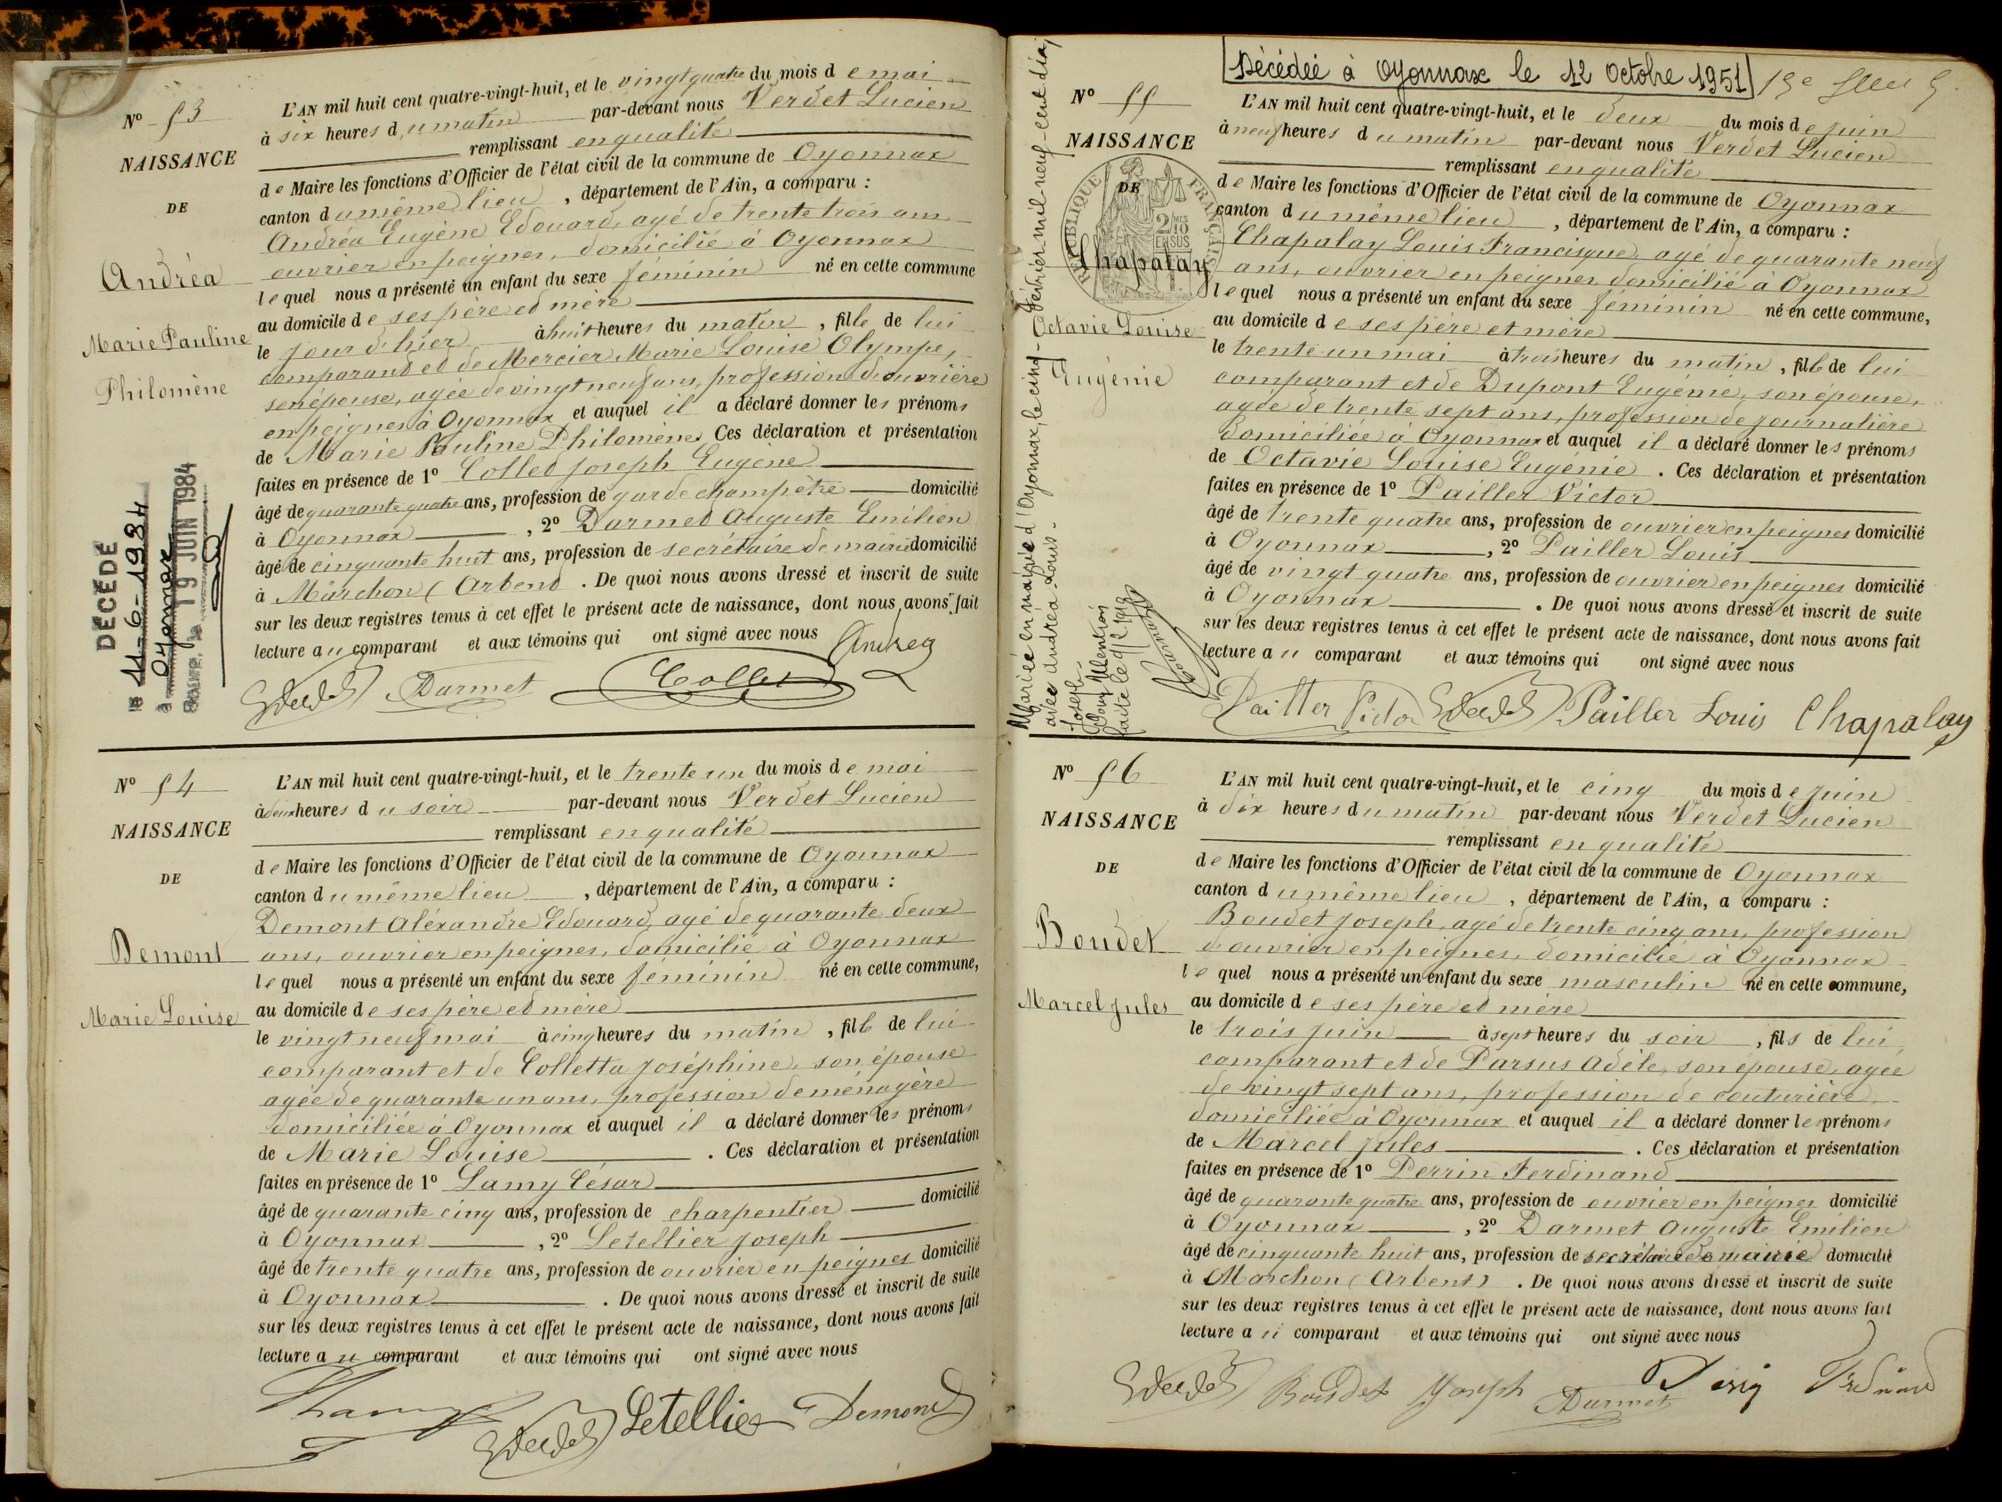 N° 53
NAISSANCE
DE
Andréa
Marie Pauline
Philomène
DÉCÉDÉ
le 11-6-1984
à Oyonnax
le 19 JUIN 1984
L'AN mil huit cent quatre-vingt-huit, et le vingt quatre du mois de mai
à six heures du matin par-devant nous Verdet Lucien
remplissant en qualité
de Maire les fonctions d'Officier de l'état civil de la commune de Oyonnax
canton du même lieu, département de l'Ain, a comparu :
Andréa Eugène Edouard, agé de trente trois ans
ouvrier en peignes, domicilié à Oyonnax
lequel nous a présenté un enfant du sexe féminin né en cette commune
au domicile de ses père et mère
le jour d'hier à huit heures du matin, fille de lui
comparant et de Mercier Marie Louise Olympe,
son épouse, agée de vingt neuf ans, profession d'ouvrière
en peignes à Oyonnax et auquel il a déclaré donner les prénoms
de Marie Pauline Philomène. Ces déclaration et présentation
faites en présence de 1° Collet Joseph Eugène
âgé de quarante quatre ans, profession de garde champêtre domicilié
à Oyonnax, 2° Darmet Auguste Emilien
âgé de cinquante huit ans, profession de secrétaire de mairie domicilié
à Marchon (Arbent. De quoi nous avons dressé et inscrit de suite
sur les deux registres tenus à cet effet le présent acte de naissance, dont nous avons fait
lecture au comparant et aux témoins qui ont signé avec nous Andréa
Verdet Darmet Collet
N° 54
NAISSANCE
DE
Demont
Marie Louise
L'AN mil huit cent quatre-vingt-huit, et le trente un du mois de mai
à deux heures du soir par-devant nous Verdet Lucien
remplissant en qualité
de Maire les fonctions d'Officier de l'état civil de la commune de Oyonnax
canton du même lieu, département de l'Ain, a comparu :
Demont Aléxandre Edouard, agé de quarante deux
ans, ouvrier en peignes, domicilié à Oyonnax
lequel nous a présenté un enfant du sexe féminin né en cette commune,
au domicile de ses père et mère
le vingt neuf mai à cinq heures du matin, fille de lui
comparant et de Colletta Joséphine, son épouse
agée de quarante un ans, profession de ménagère
domiciliée à Oyonnax et auquel il a déclaré donner les prénoms
de Marie Louise. Ces déclaration et présentation
faites en présence de 1° Lamy César
âgé de quarante cinq ans, profession de charpentier domicilié
à Oyonnax, 2° Letellier Joseph
âgé de trente quatre ans, profession de ouvrier en peignes domicilié
à Oyonnax. De quoi nous avons dressé et inscrit de suite
sur les deux registres tenus à cet effet le présent acte de naissance, dont nous avons fait
lecture au comparant et aux témoins qui ont signé avec nous
Verdet Letellier Demont
Décédée à Oyonnax le 12 Octobre 1951
N° 55
NAISSANCE
DE
RÉPUBLIQUE FRANÇAISE
Chapalay
Octavie Louise
Eugénie
Mariée en mairie d'Oyonnax, le cinq février mil neuf cent dix
avec Andréa Louis
Joseph
Pour Mention
L'AN mil huit cent quatre-vingt-huit, et le deux du mois de juin
à neuf heures du matin par-devant nous Verdet Lucien
remplissant en qualité
de Maire les fonctions d'Officier de l'état civil de la commune de Oyonnax
canton du même lieu, département de l'Ain, a comparu :
Chapalay Louis Francisque, agé de quarante neuf
ans, ouvrier en peignes domicilié à Oyonnax
lequel nous a présenté un enfant du sexe féminin né en cette commune,
au domicile de ses père et mère
le trente un mai à trois heures du matin, fille de lui
comparant et de Dupont Eugénie, son épouse,
agée de trente sept ans, profession de journalière
domiciliée à Oyonnax et auquel il a déclaré donner les prénoms
de Octavie Louise Eugénie. Ces déclaration et présentation
faites en présence de 1° Pailler Victor
âgé de trente quatre ans, profession de ouvrier en peignes domicilié
à Oyonnax, 2° Pailler Louis
âgé de vingt quatre ans, profession de ouvrier en peignes domicilié
à Oyonnax. De quoi nous avons dressé et inscrit de suite
sur les deux registres tenus à cet effet le présent acte de naissance, dont nous avons fait
lecture au comparant et aux témoins qui ont signé avec nous
Pailler Victor Verdet Pailler Louis Chapalay
N° 56
NAISSANCE
DE
Boudet
Marcel Jules
L'AN mil huit cent quatre-vingt-huit, et le cinq du mois de juin
à dix heures du matin par-devant nous Verdet Lucien
remplissant en qualité
de Maire les fonctions d'Officier de l'état civil de la commune de Oyonnax
canton du même lieu, département de l'Ain, a comparu :
Boudet Joseph, agé de trente cinq ans, profession
d'ouvrier en peignes, domicilié à Oyonnax
lequel nous a présenté un enfant du sexe masculin né en cette commune,
au domicile de ses père et mère
le trois juin à sept heures du soir, fils de lui
comparant et de Parsus Adèle, son épouse, agée
de vingt sept ans, profession de couturière,
domiciliée à Oyonnax et auquel il a déclaré donner les prénoms
de Marcel Jules. Ces déclaration et présentation
faites en présence de 1° Perrin Ferdinand
âgé de quarante quatre ans, profession de ouvrier en peignes domicilié
à Oyonnax, 2° Darmet Auguste Emilien
âgé de cinquante huit ans, profession de secrétaire de mairie domicilié
à Marchon (Arbent). De quoi nous avons dressé et inscrit de suite
sur les deux registres tenus à cet effet le présent acte de naissance, dont nous avons fait
lecture au comparant et aux témoins qui ont signé avec nous
Verdet Boudet Joseph Darmet